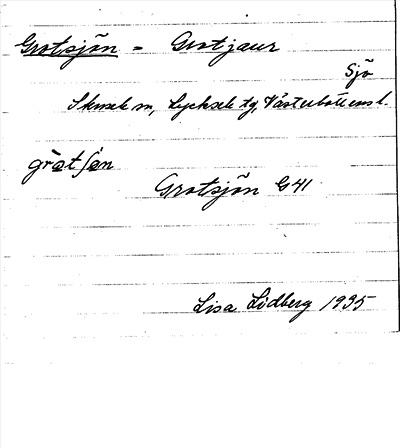 Grotsjön = Grotjaur
Sjö
Stensele sn, Lycksele tg, Västerbottens l.
gròtʃön
Grotsjön G41
Lisa Lidberg 1935